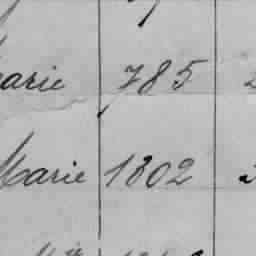 arie 785
Marie 1302